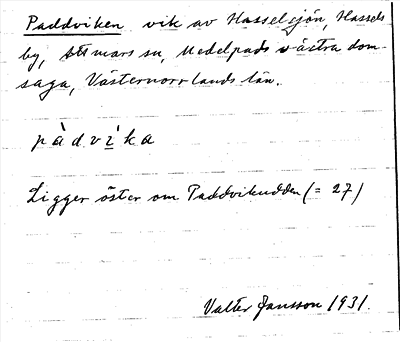 Paddviken vik av Hasselsjön, Hassels
by, Attmars sn, Medelpads västra dom-
saga, Västernorrlands län.
pàdvìka
Ligger öster om Paddvikudden (= 27)
Valter Jansson 1931.